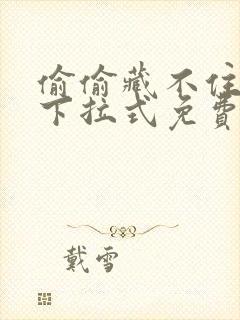 偷偷藏不住
下拉式免費
戴雪